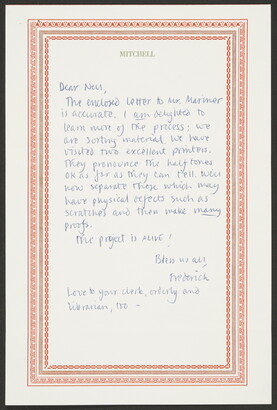 MITCHELL
Dear Neil,
The enclosed letter to Mr. Mariner
is accurate. I am delighted to
learn more of the process; we
are sorting material, we have
visited two excellent printers.
They pronounce the halftones
OK as far as they can tell. Will
now separate those which may
have physical defects such as
scratches and then make many
proofs.
The project is ALIVE!
Bless us all,
Frederick
Love to your clerk, orderly and
librarian, too —